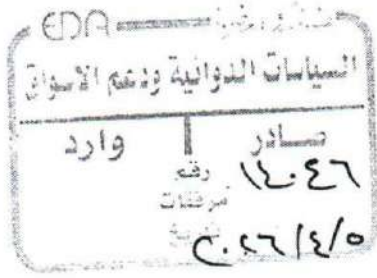 EDA
السياسات الدوائية ودعم الاسواق
صادر
وارد
رقم ١٤٠٤٦
مرفقات
٢٠٢٦/٤/٥